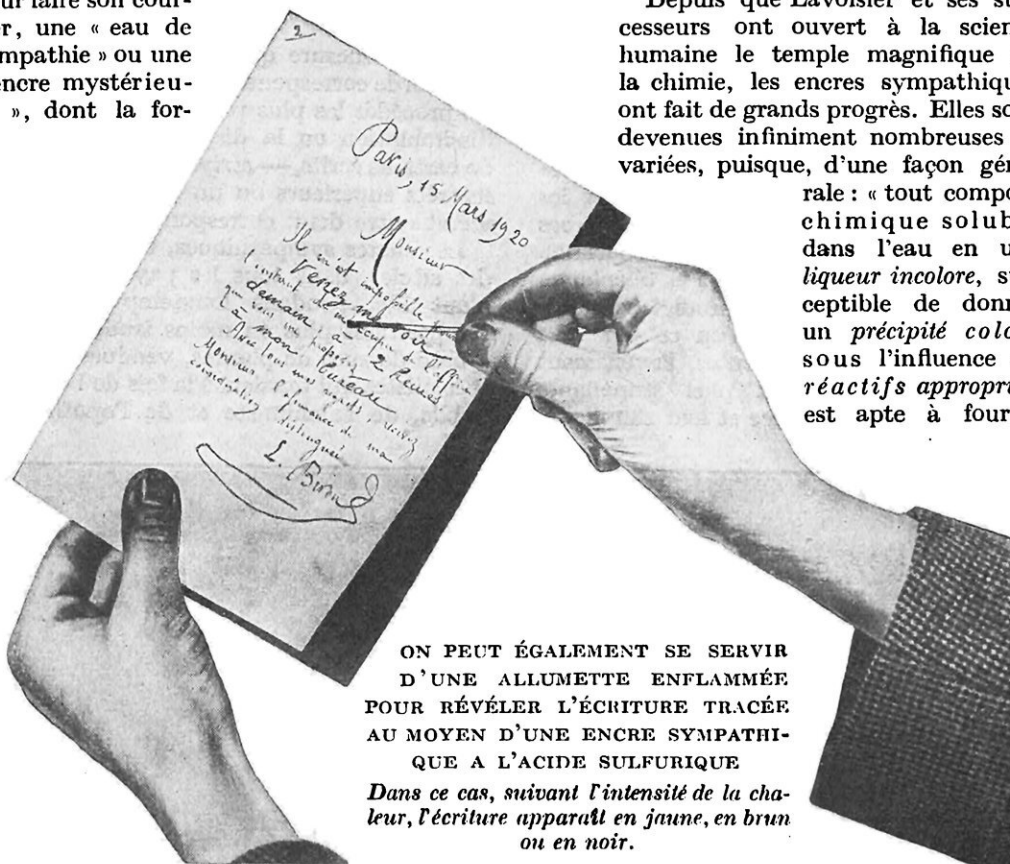 ur faire son cour-
er, une « eau de
mpathie » ou une
encre mystérieu-
», dont la for-
Depuis que Lavoisier et ses su
cesseurs ont ouvert à la scien
humaine le temple magnifique
la chimie, les encres sympathiqu
ont fait de grands progrès. Elles so
devenues infiniment nombreuses
variées, puisque, d'une façon gén
rale : « tout compo
chimique solub
dans l'eau en u
liqueur incolore, su
ceptible de donn
un précipité colo
sous l'influence
réactifs appropri
est apte à four
2
Paris, 15 Mars 1920
Monsieur
Il m'est impossible pour
Venez me voir
l'instant de m'occuper de l'aff
demain à 2 heures
que vous me proposez
à mon bureau
Avec tous mes regrets recevez
Monsieur l'assurance de ma
considération distinguée
L.
ON PEUT ÉGALEMENT SE SERVIR
D'UNE ALLUMETTE ENFLAMMÉE
POUR RÉVÉLER L'ÉCRITURE TRACÉE
AU MOYEN D'UNE ENCRE SYMPATHI-
QUE A L'ACIDE SULFURIQUE
Dans ce cas, suivant l'intensité de la cha-
leur, l'écriture apparaît en jaune, en brun
ou en noir.